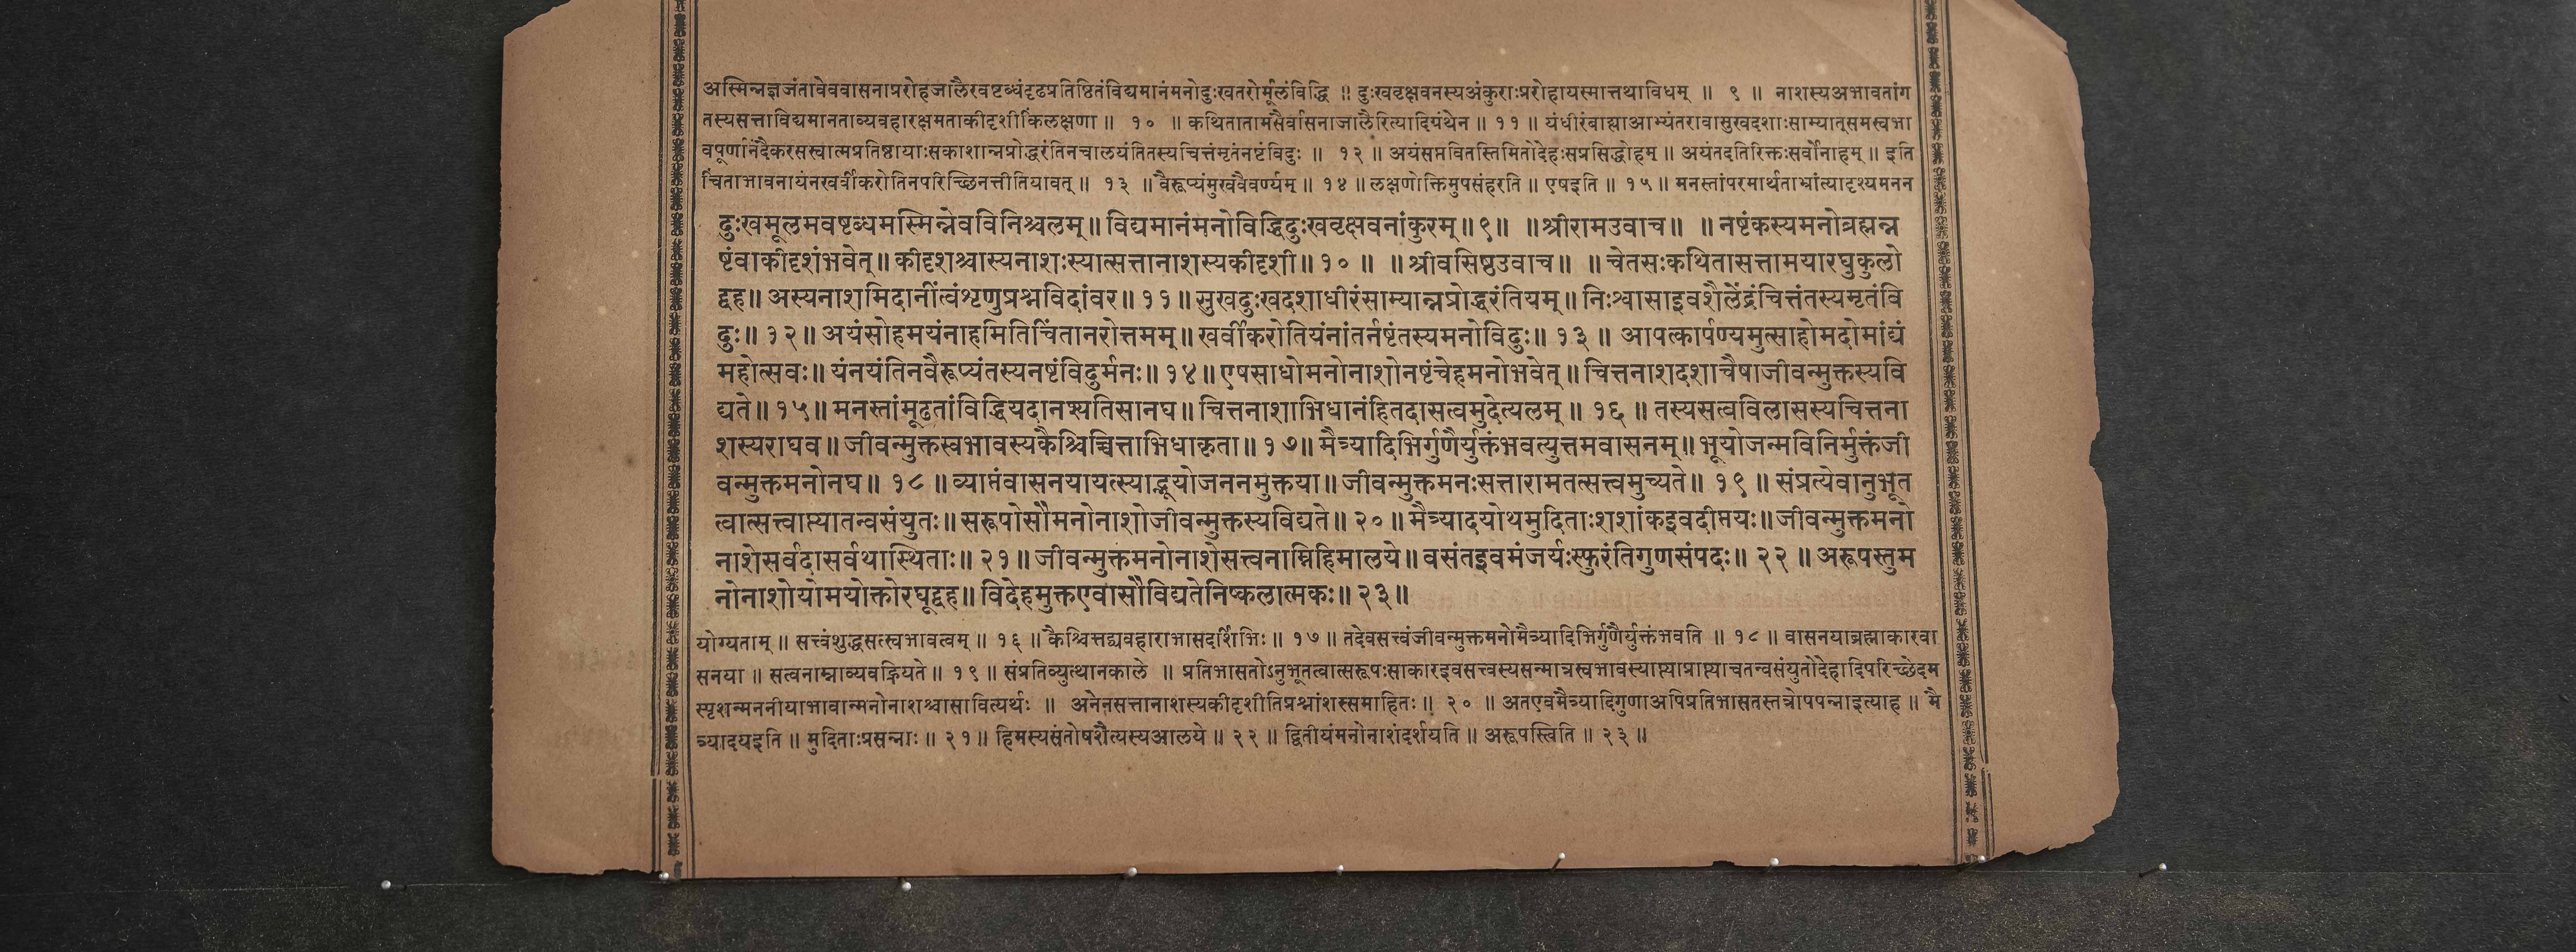 अस्मिन्नज्ञजंतावेववासनाप्ररोहजालैरवष्टब्धंदृढप्रतिष्ठितंविद्यमानंमनोदुःखतरोर्मूलंविद्धि ॥ दुःखवृक्षवनस्यअंकुराःप्ररोहायस्मात्तथाविधम् ॥ ९ ॥ नाशस्यअभावतांग
तस्यसत्ताविद्यमानताव्यवहारक्षमताकीदृशीकिंलक्षणा ॥ १० ॥ कथितातामसैर्वासनाजालैरित्यादिग्रंथेन ॥ ११ ॥ यंधीरंबाह्याआभ्यंतरावासुखदशाःसाम्यात्समस्वभा
वपूर्णानंदैकरसस्वात्मप्रतिष्ठायाःसकाशान्नप्रोद्धरंतिनचालयंतितस्यचित्तंमृतंनष्टंविदुः ॥ १२ ॥ अयंसप्तवितस्तिमितोदेहःसप्रसिद्धोहम् ॥ अयंतदतिरिक्तःसर्वोनाहम् ॥ इति
चिंताभावनायंनखर्वीकरोतिनपरिच्छिनत्तीतियावत् ॥ १३ ॥ वैरूप्यंमुखवैवर्ण्यम् ॥ १४ ॥ लक्षणोक्तिमुपसंहरति ॥ एषइति ॥ १५ ॥ मनस्तांपरमार्थताभ्रांत्यादृश्यमनन
दुःखमूलमवष्टब्धमस्मिन्नेवविनिश्चलम् ॥ विद्यमानंमनोविद्धिदुःखवृक्षवनांकुरम् ॥ ९ ॥ ॥ श्रीरामउवाच ॥ ॥ नष्टंकस्यमनोब्रह्मन्न
ष्टंवाकीदृशंभवेत् ॥ कीदृशश्चास्यनाशःस्यात्सत्तानाशस्यकीदृशी ॥ १० ॥ ॥ श्रीवसिष्ठउवाच ॥ ॥ चेतसःकथितासत्तामयारघुकुलो
द्वह ॥ अस्यनाशमिदानींत्वंशृणुप्रश्नविदांवर ॥ ११ ॥ सुखदुःखदशाधीरंसाम्यान्नप्रोद्धरंतियम् ॥ निःश्वासाइवशैलेंद्रंचित्तंतस्यमृतंवि
दुः ॥ १२ ॥ अयंसोहमयंनाहमितिचिंतानरोत्तमम् ॥ खर्वीकरोतियंनांतर्नष्टंतस्यमनोविदुः ॥ १३ ॥ आपत्कार्पण्यमुत्साहोमदोमांद्यं
महोत्सवः ॥ यंनयंतिनवैरूप्यंतस्यनष्टंविदुर्मनः ॥ १४ ॥ एषसाधोमनोनाशोनष्टंचेहमनोभवेत् ॥ चित्तनाशदशाचैषाजीवन्मुक्तस्यवि
द्यते ॥ १५ ॥ मनस्तांमूढतांविद्धियदानश्यतिसानघ ॥ चित्तनाशाभिधानंहितदासत्वमुदेत्यलम् ॥ १६ ॥ तस्यसत्वविलासस्यचित्तना
शस्यराघव ॥ जीवन्मुक्तस्वभावस्यकैश्चिच्चित्ताभिधाकृता ॥ १७ ॥ मैत्र्यादिभिर्गुणैर्युक्तंभवत्युत्तमवासनम् ॥ भूयोजन्मविनिर्मुक्तंजी
वन्मुक्तमनोनघ ॥ १८ ॥ व्याप्तंवासनयायत्स्याद्भूयोजननमुक्तया ॥ जीवन्मुक्तमनःसत्तारामतत्सत्त्वमुच्यते ॥ १९ ॥ संप्रत्येवानुभूत
त्वात्सत्त्वाप्त्यातन्वसंयुतः ॥ सरूपोसौमनोनाशोजीवन्मुक्तस्यविद्यते ॥ २० ॥ मैत्र्यादयोथमुदिताःशशांकइवदीप्तयः ॥ जीवन्मुक्तमनो
नाशेसर्वदासर्वथास्थिताः ॥ २१ ॥ जीवन्मुक्तमनोनाशेसत्त्वनाम्निहिमालये ॥ वसंतइवमंजर्यःस्फुरंतिगुणसंपदः ॥ २२ ॥ अरूपस्तुम
नोनाशोयोमयोक्तोरघूद्वह ॥ विदेहमुक्तएवासौविद्यतेनिष्कलात्मकः ॥ २३ ॥
योग्यताम् ॥ सत्त्वंशुद्धसत्स्वभावत्वम् ॥ १६ ॥ कैश्चित्तद्व्यवहाराभासदर्शिभिः ॥ १७ ॥ तदेवसत्त्वंजीवन्मुक्तमनोमैत्र्यादिभिर्गुणैर्युक्तंभवति ॥ १८ ॥ वासनयाब्रह्माकारवा
सनया ॥ सत्वनाम्नाव्यवह्रियते ॥ १९ ॥ संप्रतिव्युत्थानकाले ॥ प्रतिभासतोऽनुभूतत्वात्सरूपःसाकारइवसत्त्वस्यसन्मात्रस्वभावस्याप्त्याप्राप्त्याचतन्वसंयुतोदेहादिपरिच्छेदम
स्पृशन्मननीयाभावान्मनोनाशश्चासावित्यर्थः ॥ अनेनसत्तानाशस्यकीदृशीतिप्रश्नांशस्समाहितः ॥ २० ॥ अतएवमैत्र्यादिगुणाअपिप्रतिभासतस्तत्रोपपन्नाइत्याह ॥ मै
त्र्यादयइति ॥ मुदिताःप्रसन्नाः ॥ २१ ॥ हिमस्यसंतोषशैत्यस्यआलये ॥ २२ ॥ द्वितीयंमनोनाशंदर्शयति ॥ अरूपस्त्विति ॥ २३ ॥